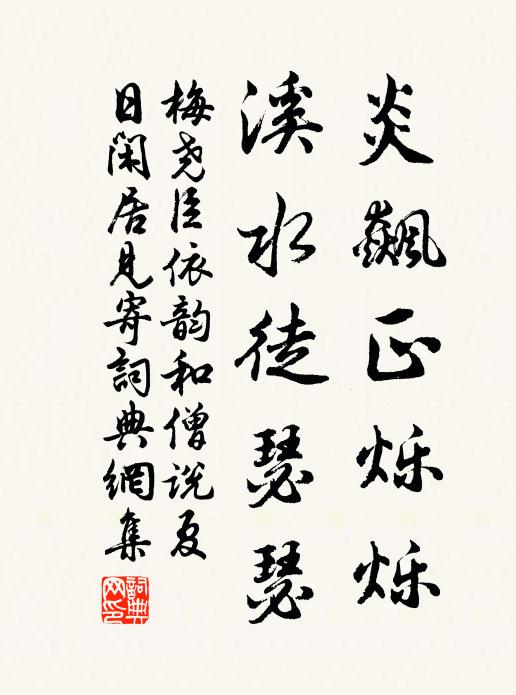 炎飙正烁烁
溪水徒瑟瑟
梅尧臣依韵和僧说夏
日闲居见寄詞典網集
詞典网印